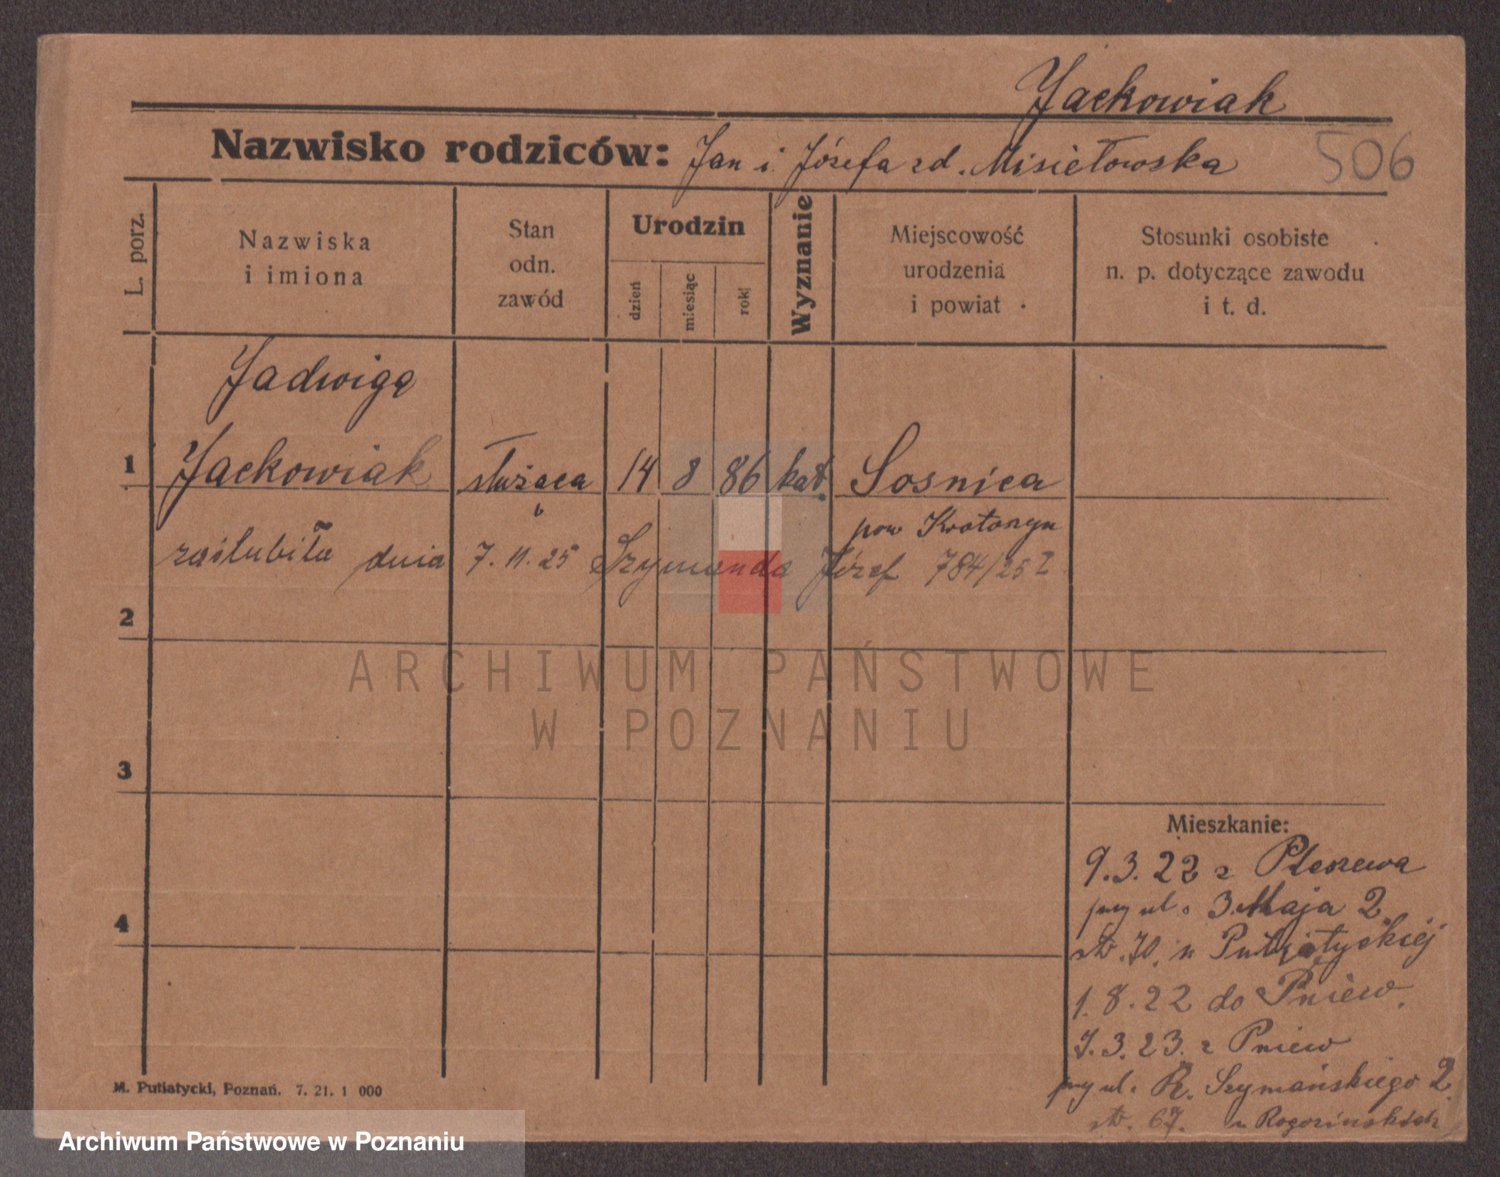 Jackowiak
Nazwisko rodziców: Jan i Józefa zd. Misiełowska
506
L. porz.
Nazwiska i imiona
Stan odn. zawód
Urodzin
dzień
miesiąc
rok
Wyznanie
Miejscowość urodzenia i powiat
Stosunki osobiste n. p. dotyczące zawodu i t. d.
Jadwiga
1 Jackowiak służąca 14 8 86 kat. Sosnica
pow Krotoszyn
zaślubiła dnia 7. 11. 25 Szymanda Józef 784/25 Z
2
3
4
Mieszkanie:
9.3.22 z Pleszewa
przy ul. 3 Maja 2
str. 70. u Putiatyckiej
1.8.22 do Pniew.
7.3.23. z Pniew
przy ul. R. Szymańskiego 2
str. 67. u Rogozińskich
M. Putiatycki, Poznań. 7. 21. 1 000
ARCHIWUM PAŃSTWOWE
W POZNANIU
Archiwum Państwowe w Poznaniu